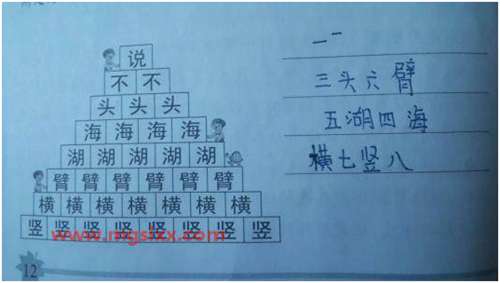 说
不不
头头头
海海海海
湖湖湖湖湖
臂臂臂臂臂臂
横横横横横横横
竖竖竖竖竖竖竖竖
三头六臂
五湖四海
横七竖八
www.mgslxx.com
12